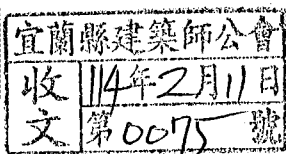 宜蘭縣建築師公會
收文
114年2月11日
第0075號